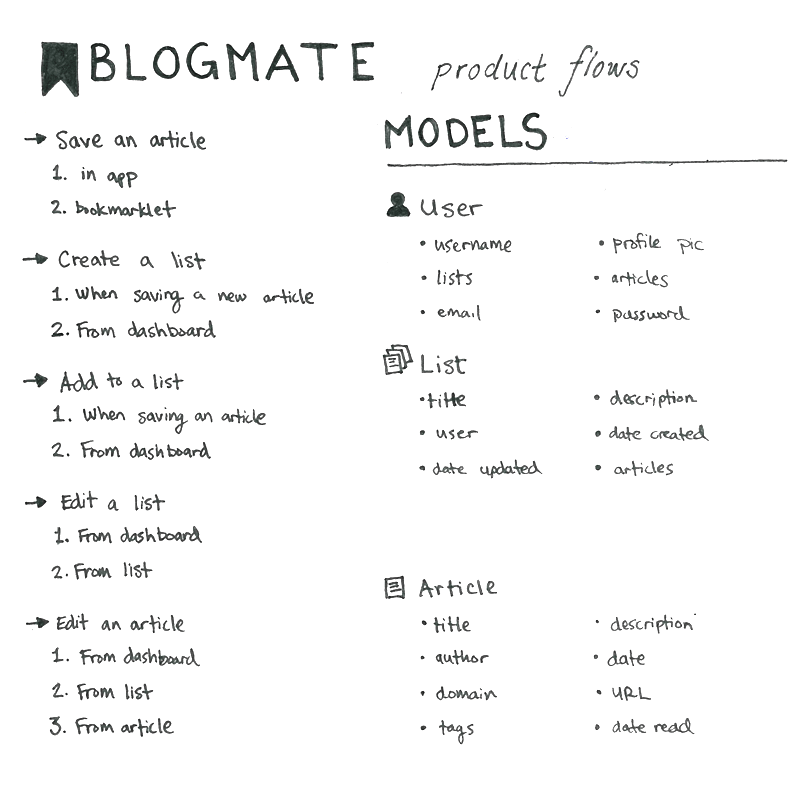 BLOGMATE product flows
→ Save an article
1. in app
2. bookmarklet
→ Create a list
1. When saving a new article
2. From dashboard
→ Add to a list
1. When saving an article
2. From dashboard
→ Edit a list
1. From dashboard
2. From list
→ Edit an article
1. From dashboard
2. From list
3. From article
MODELS
User
• username • profile pic
• lists • articles
• email • password
List
• title • description
• user • date created
• date updated • articles
Article
• title • description
• author • date
• domain • URL
• tags • date read